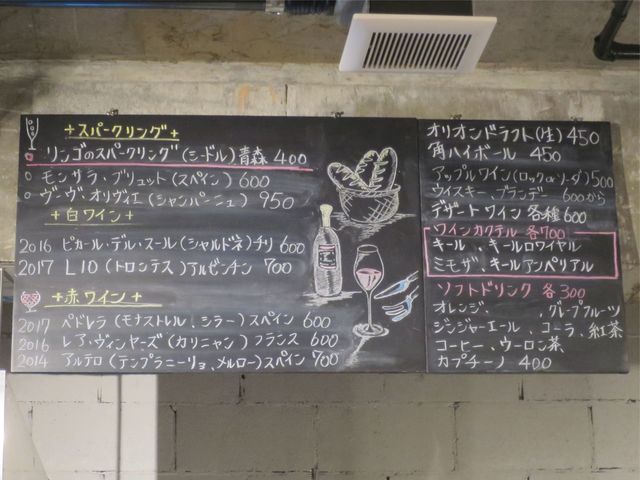 +スパークリング+
リンゴのスパークリング(シードル)青森 400
モンサラ・ブリュット(スペイン) 600
ヴーヴ・オリヴィエ(シャンパーニュ) 950
+白ワイン+
2016 ピカール・デル・スール(シャルドネ)チリ 600
2017 LIO(トロンテス)アルゼンチン 700
+赤ワイン+
2017 ペドレラ(モナストレル、シラー)スペイン 600
2016 レア・ヴィンヤーズ(カリニャン)フランス 600
2014 アルテロ(テンプラニーリョ、メルロー)スペイン 700
オリオンドラフト(生)450
角ハイボール 450
アップルワイン(ロックorソーダ)500
ウイスキー、ブランデー 600から
デザートワイン 各種600
ワインカクテル 各700
キール、キールロワイヤル
ミモザ、キールアンペリアル
ソフトドリンク 各300
オレンジ、 、グレープフルーツ
ジンジャーエール、コーラ、紅茶
コーヒー、ウーロン茶
カプチーノ 400